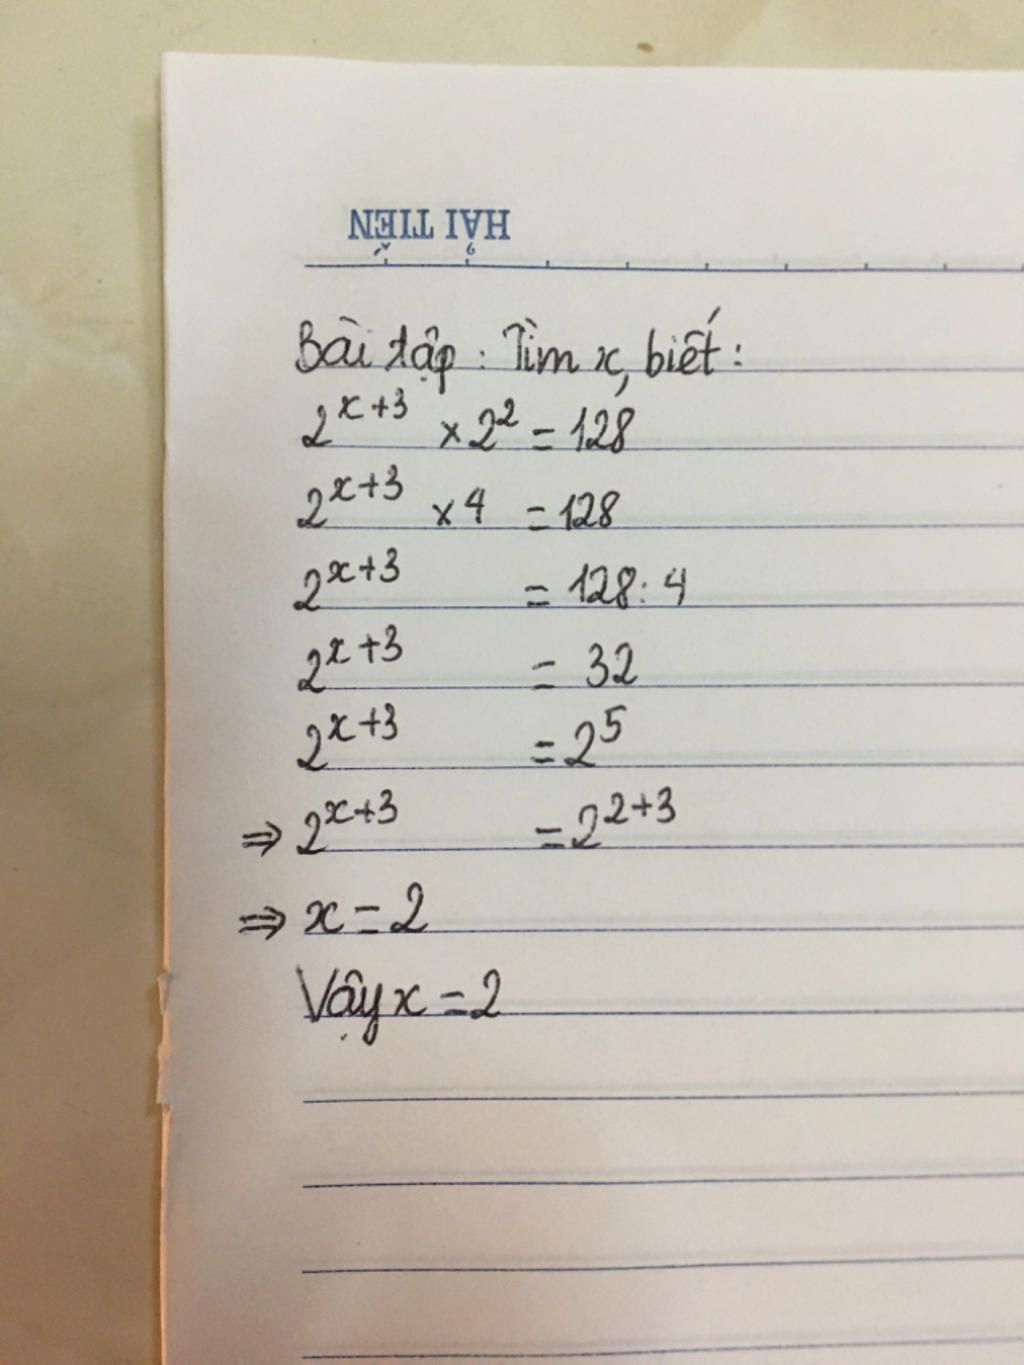 HẢI TIẾN
Bài tập : Tìm x, biết :
2^{x+3} × 2^2 = 128
2^{x+3} × 4 = 128
2^{x+3} = 128 : 4
2^{x+3} = 32
2^{x+3} = 2^5
⇒ 2^{x+3} = 2^{2+3}
⇒ x = 2
Vậy x = 2